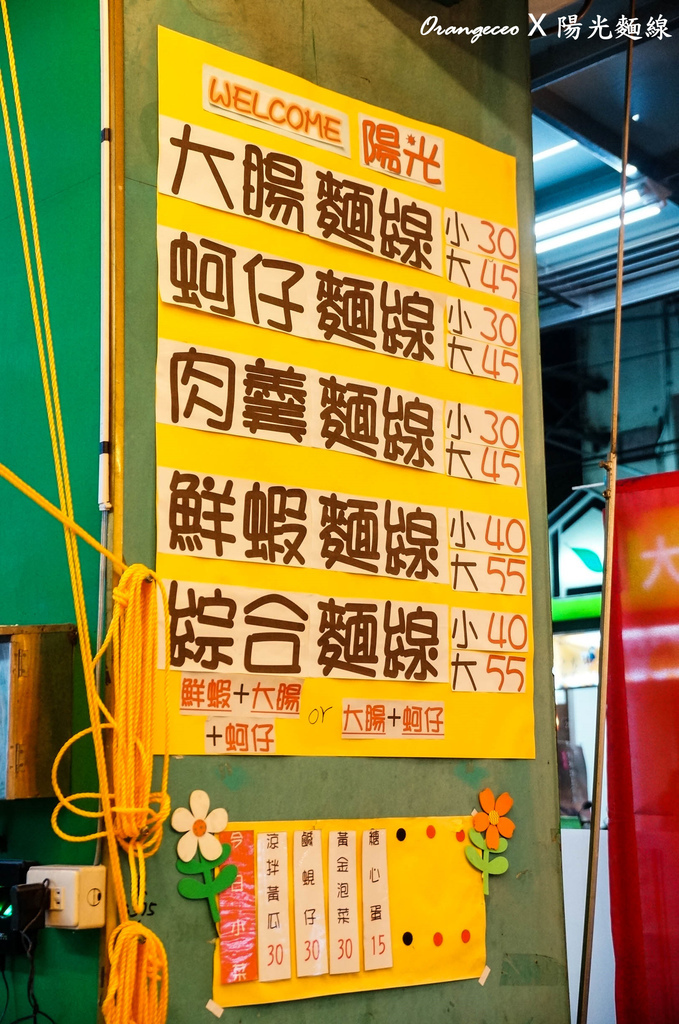 Orangeceo X 陽光麵線
WELCOME 陽光
大腸麵線 小 30
大 45
蚵仔麵線 小 30
大 45
肉羹麵線 小 30
大 45
鮮蝦麵線 小 40
大 55
綜合麵線 小 40
大 55
鮮蝦+大腸
+蚵仔
or
大腸+蚵仔
今日小菜
涼拌黃瓜 30
鹹蜆仔 30
黃金泡菜 30
糖心蛋 15
大